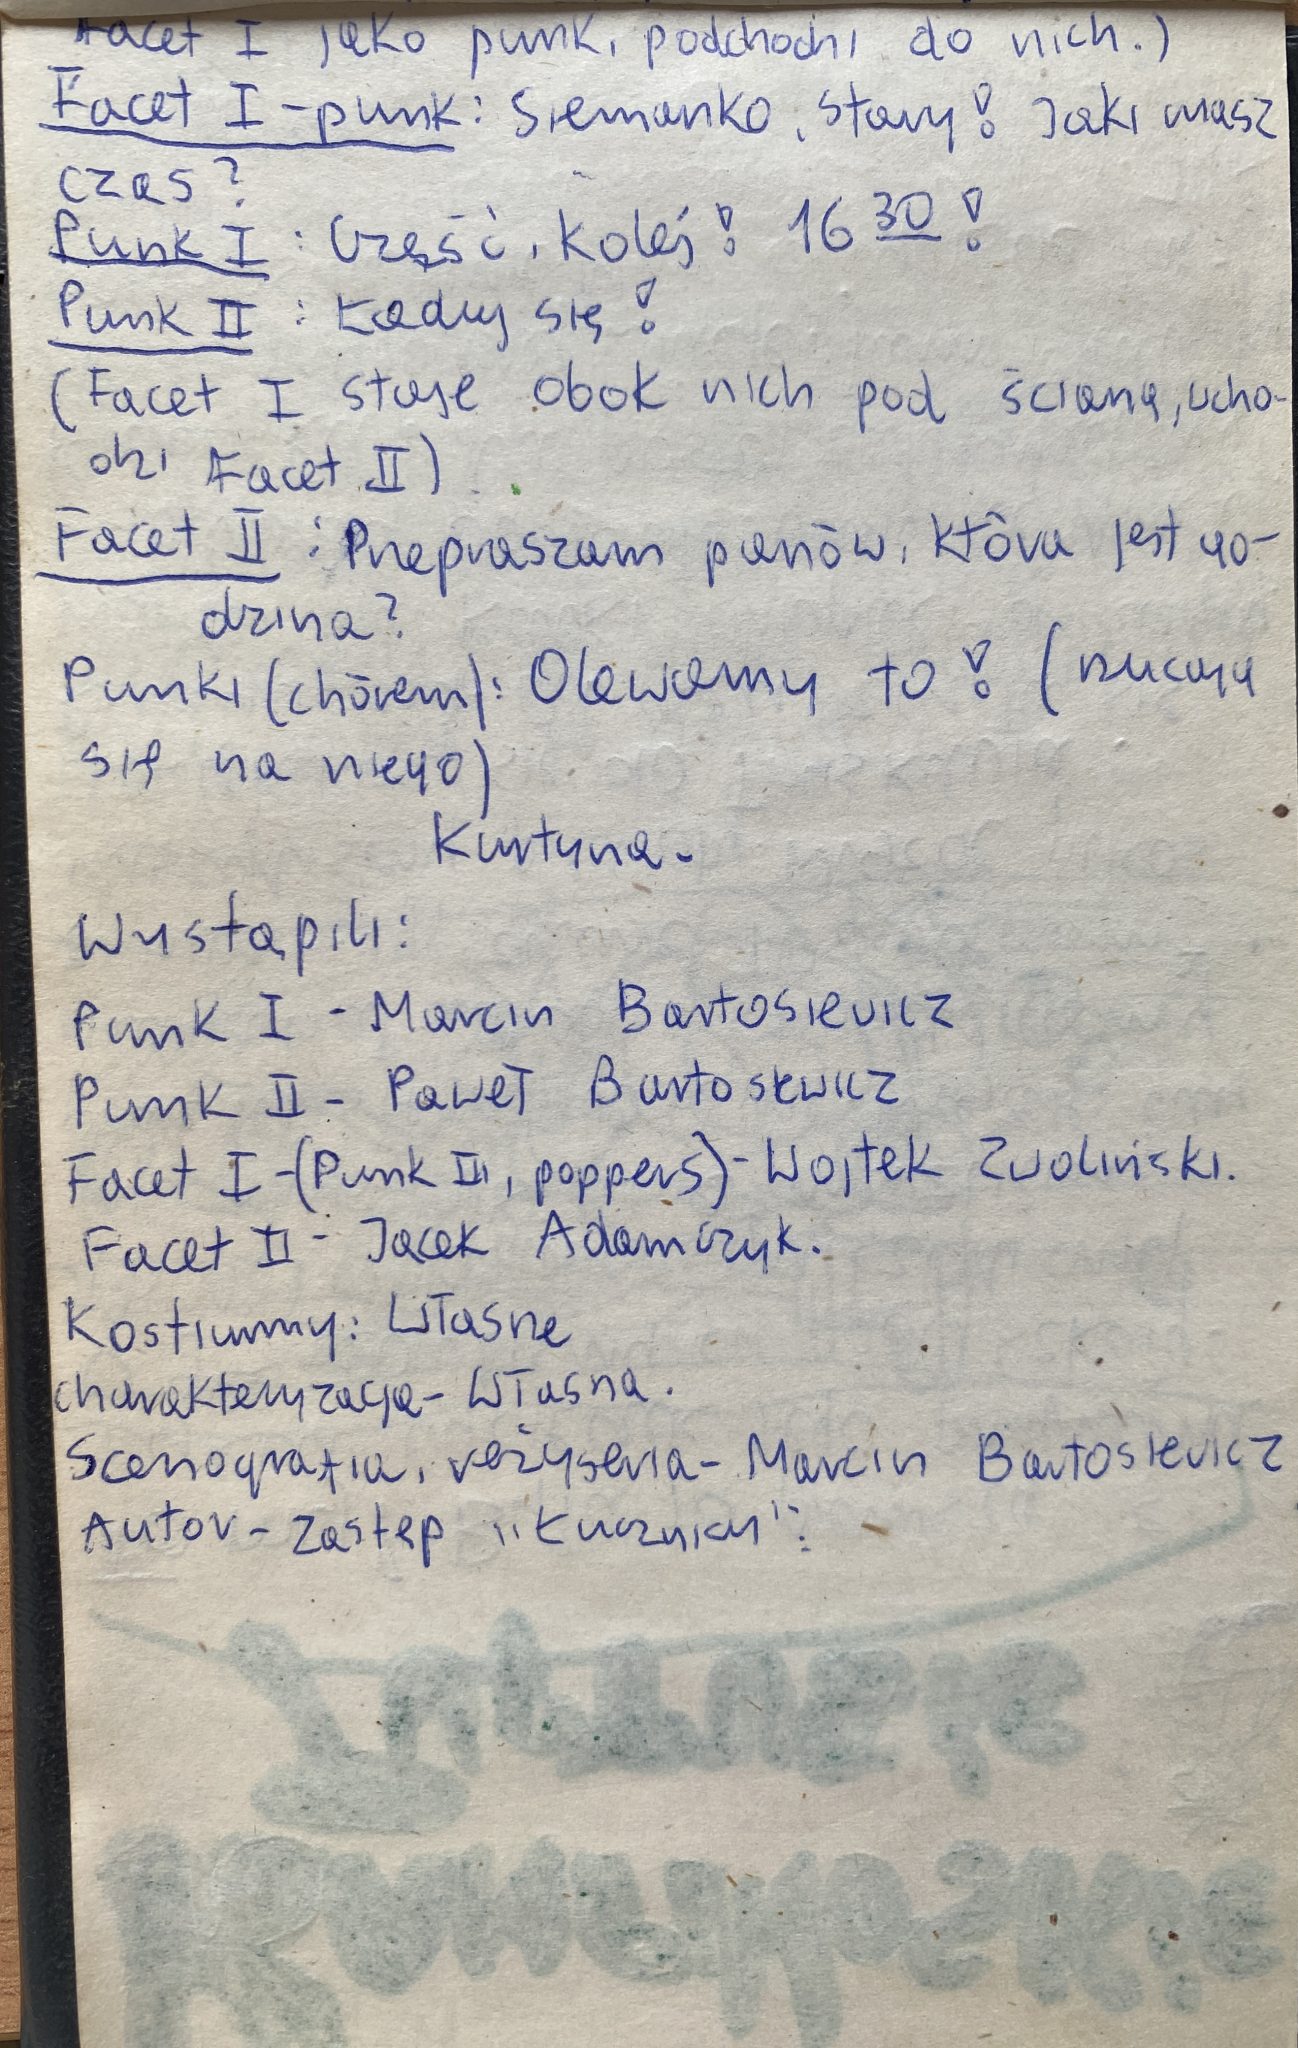 Facet I jako punk, podchodzi do nich.)
Facet I - punk: Siemanko, stary! Jaki masz
czas?
Punk I: Cześć, koleś! 16 30!
Punk II: Ładuj się!
(Facet I staje obok nich pod ścianą, wcho-
dzi Facet II)
Facet II: Przepraszam panów, która jest go-
dzina?
Punki (chórem): Olewamy to! (rzucają
się na niego)
Kurtyna.
Wystąpili:
Punk I - Marcin Bartosiewicz
Punk II - Paweł Bartosiewicz
Facet I - (Punk III, poppers) - Wojtek Zwoliński.
Facet II - Jacek Adamczyk.
Kostiumy: Własne
charakteryzacja - Własna.
Scenografia, reżyseria - Marcin Bartosiewicz
Autor - Zastęp "Łucznicy":